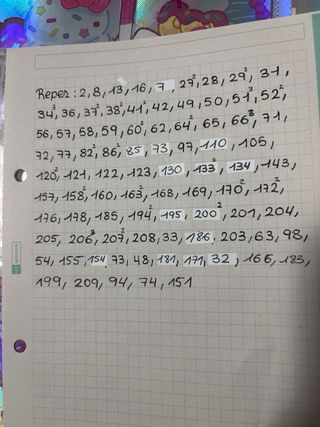 Repes: 2, 8, 13, 16, 7, 27², 28, 29², 31,
34³, 36, 37², 38², 41², 42, 49, 50, 51³, 52²,
56, 57, 58, 59, 60², 62, 64², 65, 66³, 71,
72, 77, 82², 86², 85, 73, 97, 110, 105,
120², 121, 122, 123, 130, 133², 134, 143,
157, 158², 160, 163², 168, 169, 170², 172²,
176, 178, 185, 194², 195, 200², 201, 204,
205, 206³, 207², 208, 33, 186, 203, 63, 98,
54, 155, 154, 73, 48, 181, 171, 32, 166, 183,
199, 209, 94, 74, 151